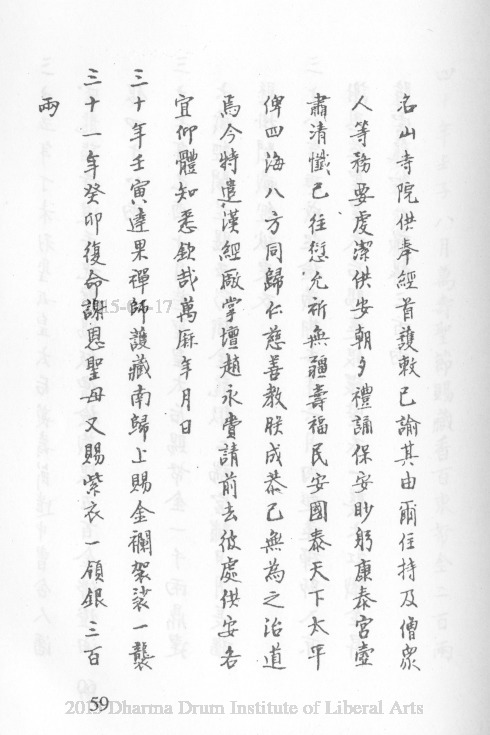 名山寺院供奉經首護敕已諭其由爾住持及僧眾
人等務要虔潔供安朝夕禮誦保安眇躬康泰宮壼
肅清懺已往愆尤祈無疆壽福民安國泰天下太平
俾四海八方同歸仁慈善教朕成恭己無為之治道
焉今特遣漢經厰掌壇趙永賫請前去彼處供安各
宜仰體知悉欽哉萬厤年月日
三十年壬寅達果禪師護藏南歸上賜金襴袈裟一襲
三十一年癸卯復命謝恩聖母又賜紫衣一領銀三百
兩
59
2015 Dharma Drum Institute of Liberal Arts